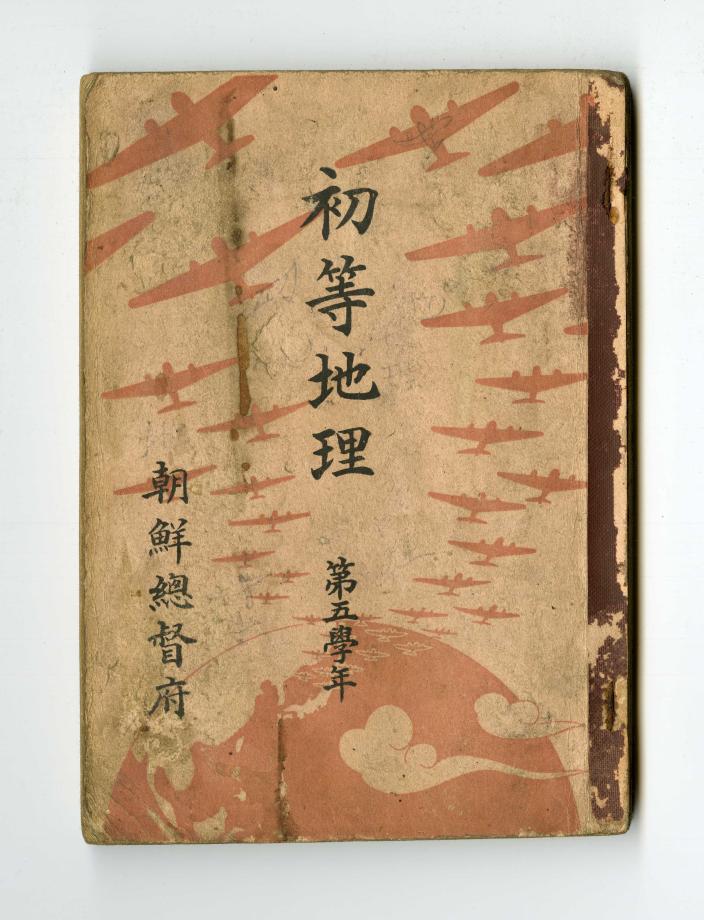 初等地理
第五學年
朝鮮總督府